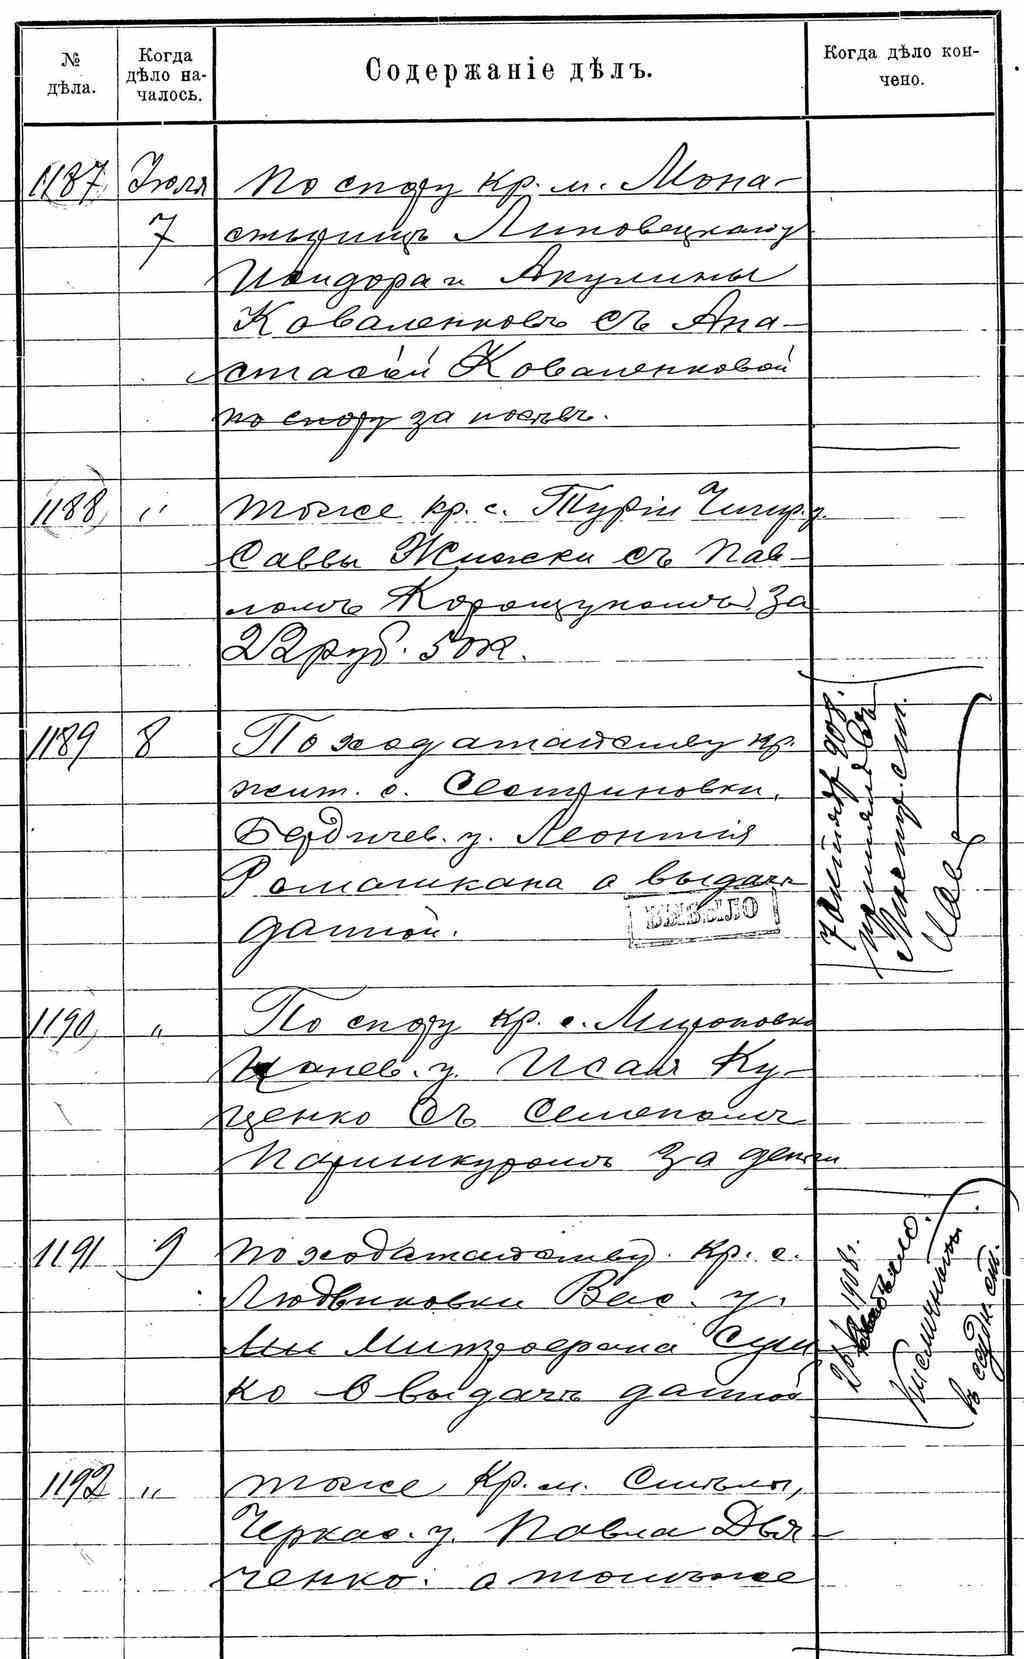 № дѣла.
Когда дѣло на-
чалось.
Содержаніе дѣлъ.
Когда дѣло кон-
чено.
1187 Июля По спору кр. м. Мона-
7 стырищъ Липовецкаго у.
Исидора и Акулины
Коваленковъ съ Ана-
стасіей Коваленковой
по спору за посѣвъ.
1188 " тоже кр. с. Турій Чигир. у.
Саввы Жижки съ Пав-
ломъ Корощукомъ за
22 руб. 50 к.
1189 8 По ходатайству кр.
жит. с. Сестриновки,
Бердичев. у. Леонтія
Ромашкана о выдачѣ
данной.
ВЫБЫЛО
908.
1190 " По спору кр. с. Мироновки
Канев. у. Исая Ку-
ценко съ Семеномъ
Паришкуромъ за деньги
1191 9 по ходатайству кр. с.
Людвиковки Вас. у.
Митрофана Суш
ко о выдачѣ данной
1908 г.
1192 " тоже кр. м. Смѣлы,
Черкас. у. Павла Дья-
ченко о томъ же